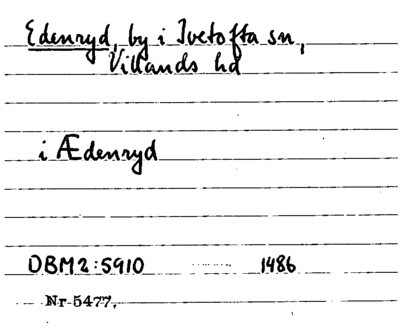 Edenryd, by i Ivetofta sn,
Villands hd
i Ædenryd
DBM2:5910 1486
Nr 5477.